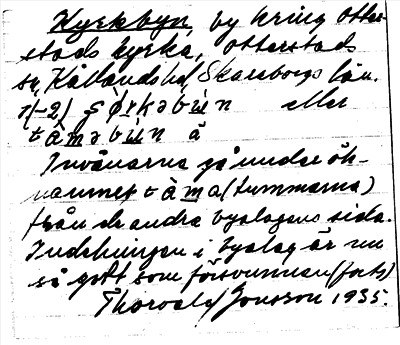 Kyrkbyn, by kring Otter-
stads kyrka, Otterstads
sn, Kållands hd, Skaraborgs län.
eller
Invånarna gå under ök-
namnet (tummarna)
från de andra byalagens sida.
Indelningen i byalag är nu
så gott som försvunnen (forts)
Thorvald Jonsson 1935.